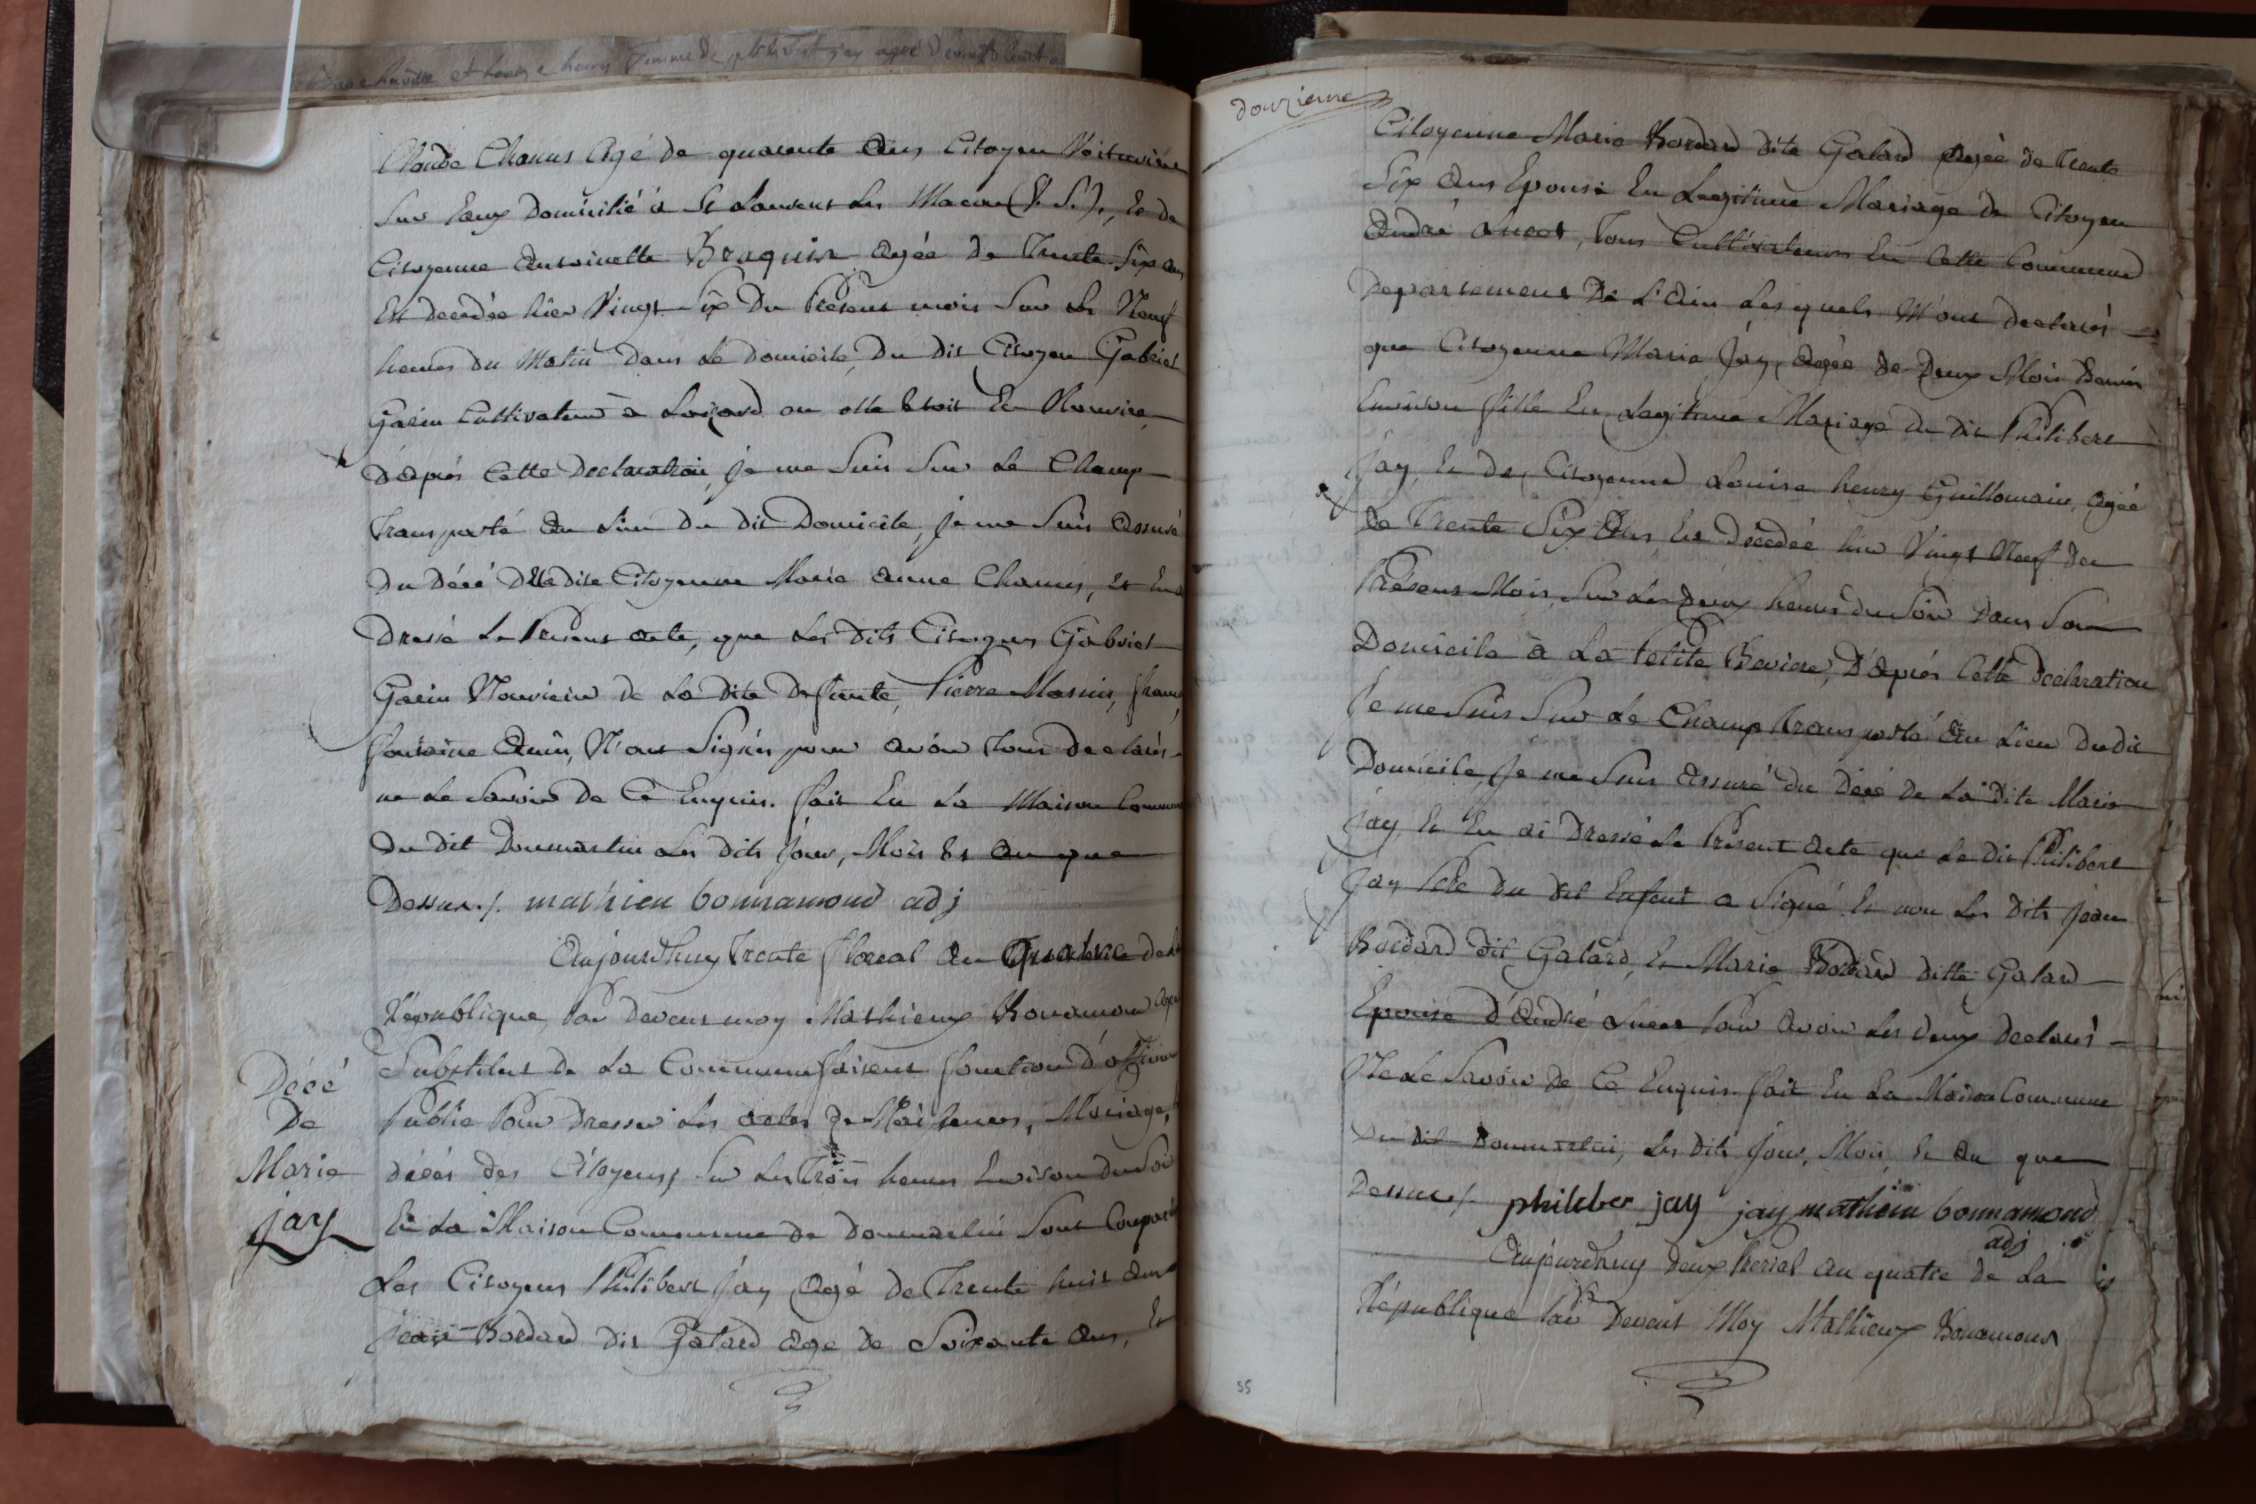 Claude Chanus Agé de quarente Ans Citoyen Voiturier
Sur Eaux Domicilié à St Laurent Les Macon (S. L.), Et de
Citoyenne Antoinette Braquier Agée de Trente-Six ans
Est decedée hier Vingt-Six Du Présent mois Sur Les Neuf
heures du Matin dans Le Domicile, Du dit Citoyen Gabriel
Garin Cultivateur à Loizard ou elle Etoit En Nourrice
D'après Cette Declaration, je me Suis Sur Le Champ
Transporté Au Lieu du dit Domicile, je me Suis Assuré
Du Décé D'Ladite Citoyenne Marie Anne Chanus, Et En ai
Dressé Le Present acte, que Les dits Citoyens Gabriel
Garin Nouricier de La dite Defunte, Pierre
fontaine Amis, N'ont Signés pour avoir Tous declarés
ne Le Savoir de Ce Enquis. fait En La Maison Commune
Du dit Dommartin Les dits jour, Mois Et An que
Dessus ./. mathieu bonnamour adj
Aujourdhuy Trente floreal An Quatre de la
République par devent moy Mathieux Bonamour agent
Substitut de La Commune faisent fonction d'officier
Public Pour Dresser Les actes de Naissences, Mariage,
décés des Citoyens, Sur Les Trois heures Environ du Soir
En La Maison Commune de Dommartin Sont Comparus
Les Citoyens Philibert Jay Agé de Trente huit Ans
jean Bordard dit Galard age de Soixante Ans, Et
Décé
De
Marie
Jay
douzieme
Citoyenne Marie Bordard dite Galard Agée de Trente
Six Ans Epouse En Legitime Mariage de Citoyen
André Lucot, Tous Cultivateurs En Cette Commune
Departement De L'Ain Les quels M'ont declarés
que Citoyenne Marie Jay, Agée de Deux Mois Demis
Environ fille En Legitime Mariage du dit Philibert
Jay, Et de Citoyenne Louise henry Guillomain, Agée
de Trente Six Ans Est Decedée hier Vingt Neuf du
Présent Mois, Sur Les deux heures du Soir Dans Son
Domicile à La Petite Baviere, D'Après Cette Declaration
Je me Suis Sur Le Champ Transporté Au Lieu Dudit
Domicile, je me Suis Assuré du Décé de La dite Marie
Jay, Et En ai Dressé Le Present Acte que Le dit Philibert
Jay Père du dit Enfant a Signé Et non Les dits Jean
Bordard dit Galard, Et Marie Bordard ditte Galard
Epouse d'André Lucot Pour avoir Les deux declarés
Ne Le Savoir de Ce Enquis. fait En La Maison Commune
Du dit Dommartin, Les dits jour, Mois Et An que
Dessus ./. philiber jay jay mathieu bonnamour
adj
Aujourdhuy Deux Prerial An quatre de La
République Par Devent Moy Mathieux Bonamour
55